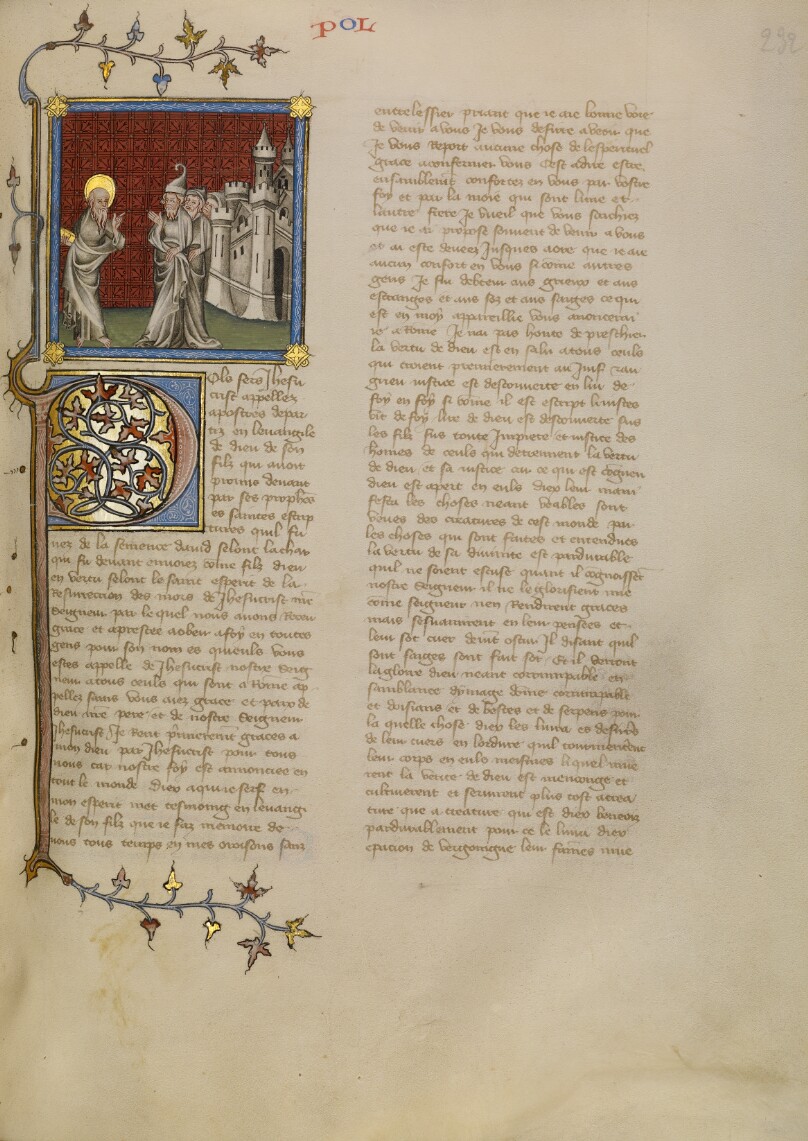 POL
232
Polo sers Jhesu
crist appellez
apostres depar
tiz en leuangile
de dieu de son
filz qui auoit
promis deuant
par ses prophet
es saintes escrip
tures quil fu
nez de la semence dauid selont la char
qui fu deuant enuoiez come filz dieu
en vertu selont le saint esperit de la
Resurrection des mors de Jhesucrist nre
Seigneur par le quel nous auons Receu
grace et aprestee aobeir a foy en toutes
gens pour son nom es queuls vous
estes appelle de Jhesucrist nostre Seig
neur atous ceuls qui sont a Rome ap
pellez sains vous aiez grace et paix de
dieu nre pere et de nostre Seigneur
Jhesucrist Je Rent premierement graces a
mon dieu par Jhesucrist pour tous
nous car nostre foy est annonciee en
tout le monde Diex a qui ie serf en
mon esperit met tesmoing en leuangi
le de son filz que ie faz memoire de
nous tous temps en mes oroisons sanz
entrelessier priant que ie aie bonne voie
de venir a vous Je vous desirre a veoir que
Je vous Report aucune chose de lesperituel
grace a confermer vous Cest adire estre
ensamblement confortez en vous par vostre
foy et par la moie qui sont lune et
lautre frere Je vueil que vous sachiez
que ie ai propose souuent de venir a vous
et ai este deueez Jusques aore que ie aie
aucun confort en vous si come autres
gens Je sui debteur aus grieux et aus
estranges et aus sez et aus saiges ce qui
est en moy appareillie vous anoncerai
ie a Rome Je nai pas honte de preschier
la vertu de dieu est en salu a tous ceuls
qui croient premierement au Juif
grieu iustice est descouuerte en lui de
foy en foy si come il est escript li iustes
vit de foy Lire de dieu est descouuerte sus
les filz sus toute Inpiete et iustice des
homes de ceuls qui detiennent la verte
de dieu et sa iustice car ce qui est cogneu
dieu est apert en euls diex leur mani
festa les choses neant veables sont
veues des creatures de cest monde par
les choses qui sont faites et entendues
la vertu de sa diuinite est pardurable
quil ne soient escuse quant il cognoissent
nostre Seigneur il ne le glorifient mie
come seigneur nen Rendirent graces
mais sesuanuirent en leur pensees et
leur sot cuer deuint oscur Il disant quil
sont saiges sont fait sot Et il
la gloire dieu neant corrumpable en
samblance dymage dome corrumpable
et doisiaus et de bestes et de serpens pour
la quelle chose diex les liura es desirs
de leur cuers en lordure quil
leur corps en euls meismes li quel mue
rent la verite de dieu en menconge et
cultiuerent et seruirent plus tost a crea
ture que a creature qui est diex
pardurablement pour ce le liura diex
epacion de vergongne leur fames mue